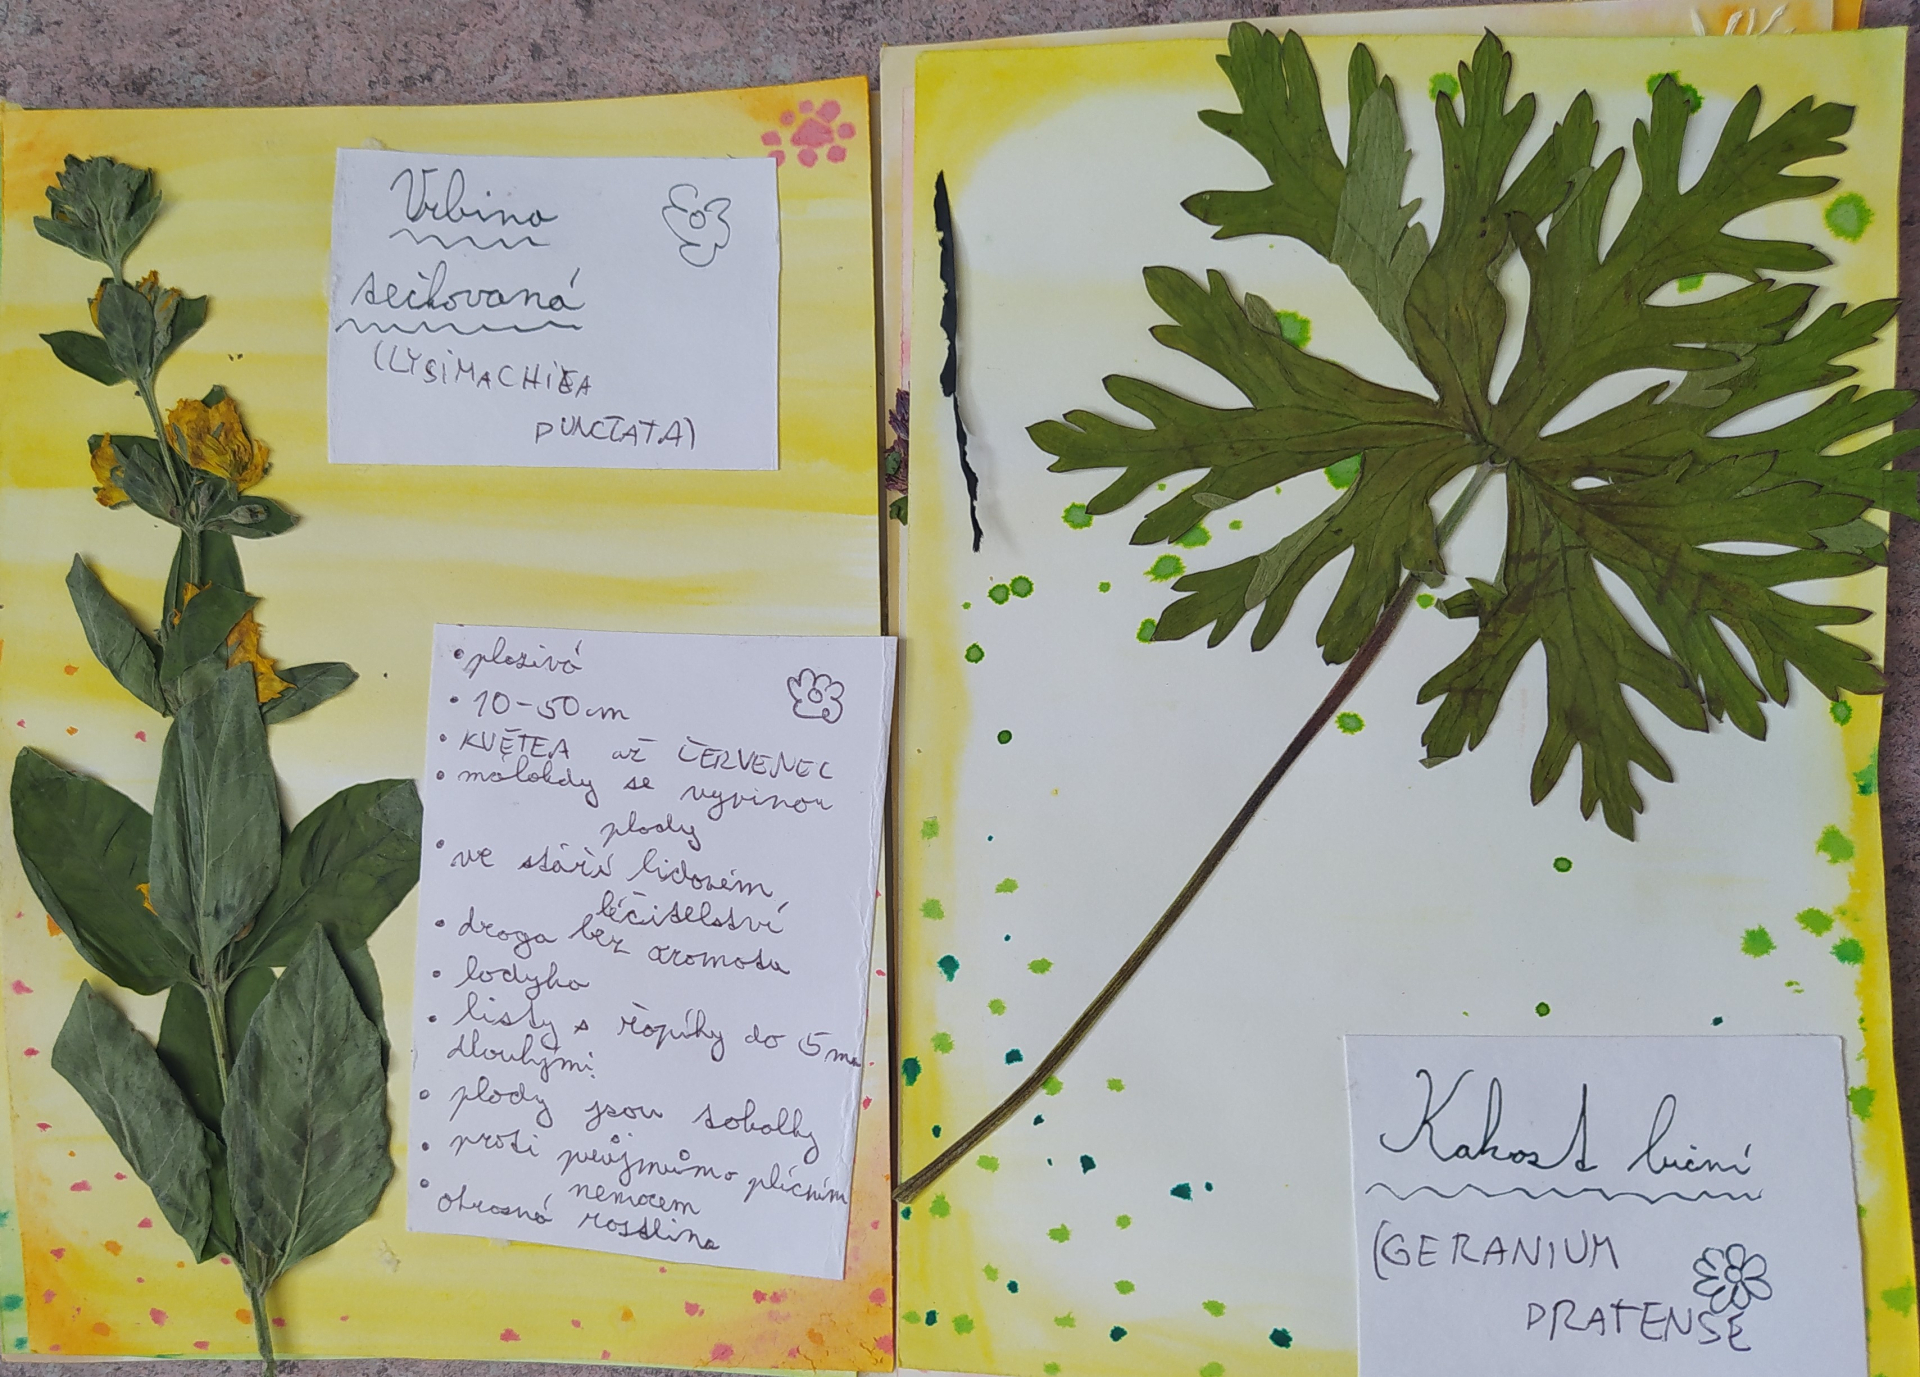 Vrbina
tečkovaná
(LYSIMACHIEA
PUNCTATA)
• plazivá
• 10-50cm
• KVĚTEA až ČERVENEC
• málokdy se vyvinou
plody
• ve stáří lidovém
léčitelství
• droga bez aromatu
• lodyha
• listy s řapíky do 5 mm
dlouhými
• plody jsou tobolky
• proti průjmům a plícním
nemocem
• okrasná rostlina
Kakost luční
(GERANIUM
PRATENSE